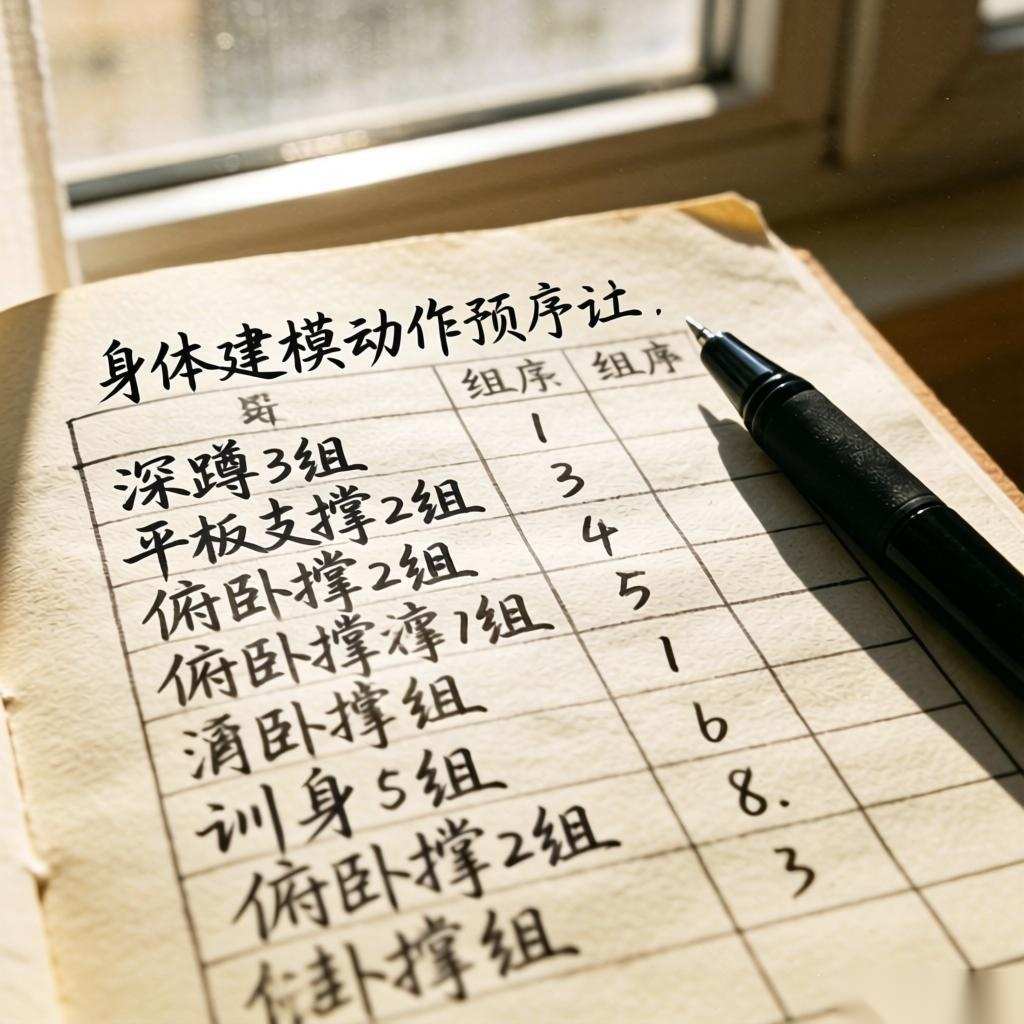 身体建模动作预序让.
组序 组序
深蹲3组 1
平板支撑2组 3
俯卧撑2组 4
俯卧撑 1组 5
卧撑组 1
训身5组 6
俯卧撑2组 8.
撑组 3